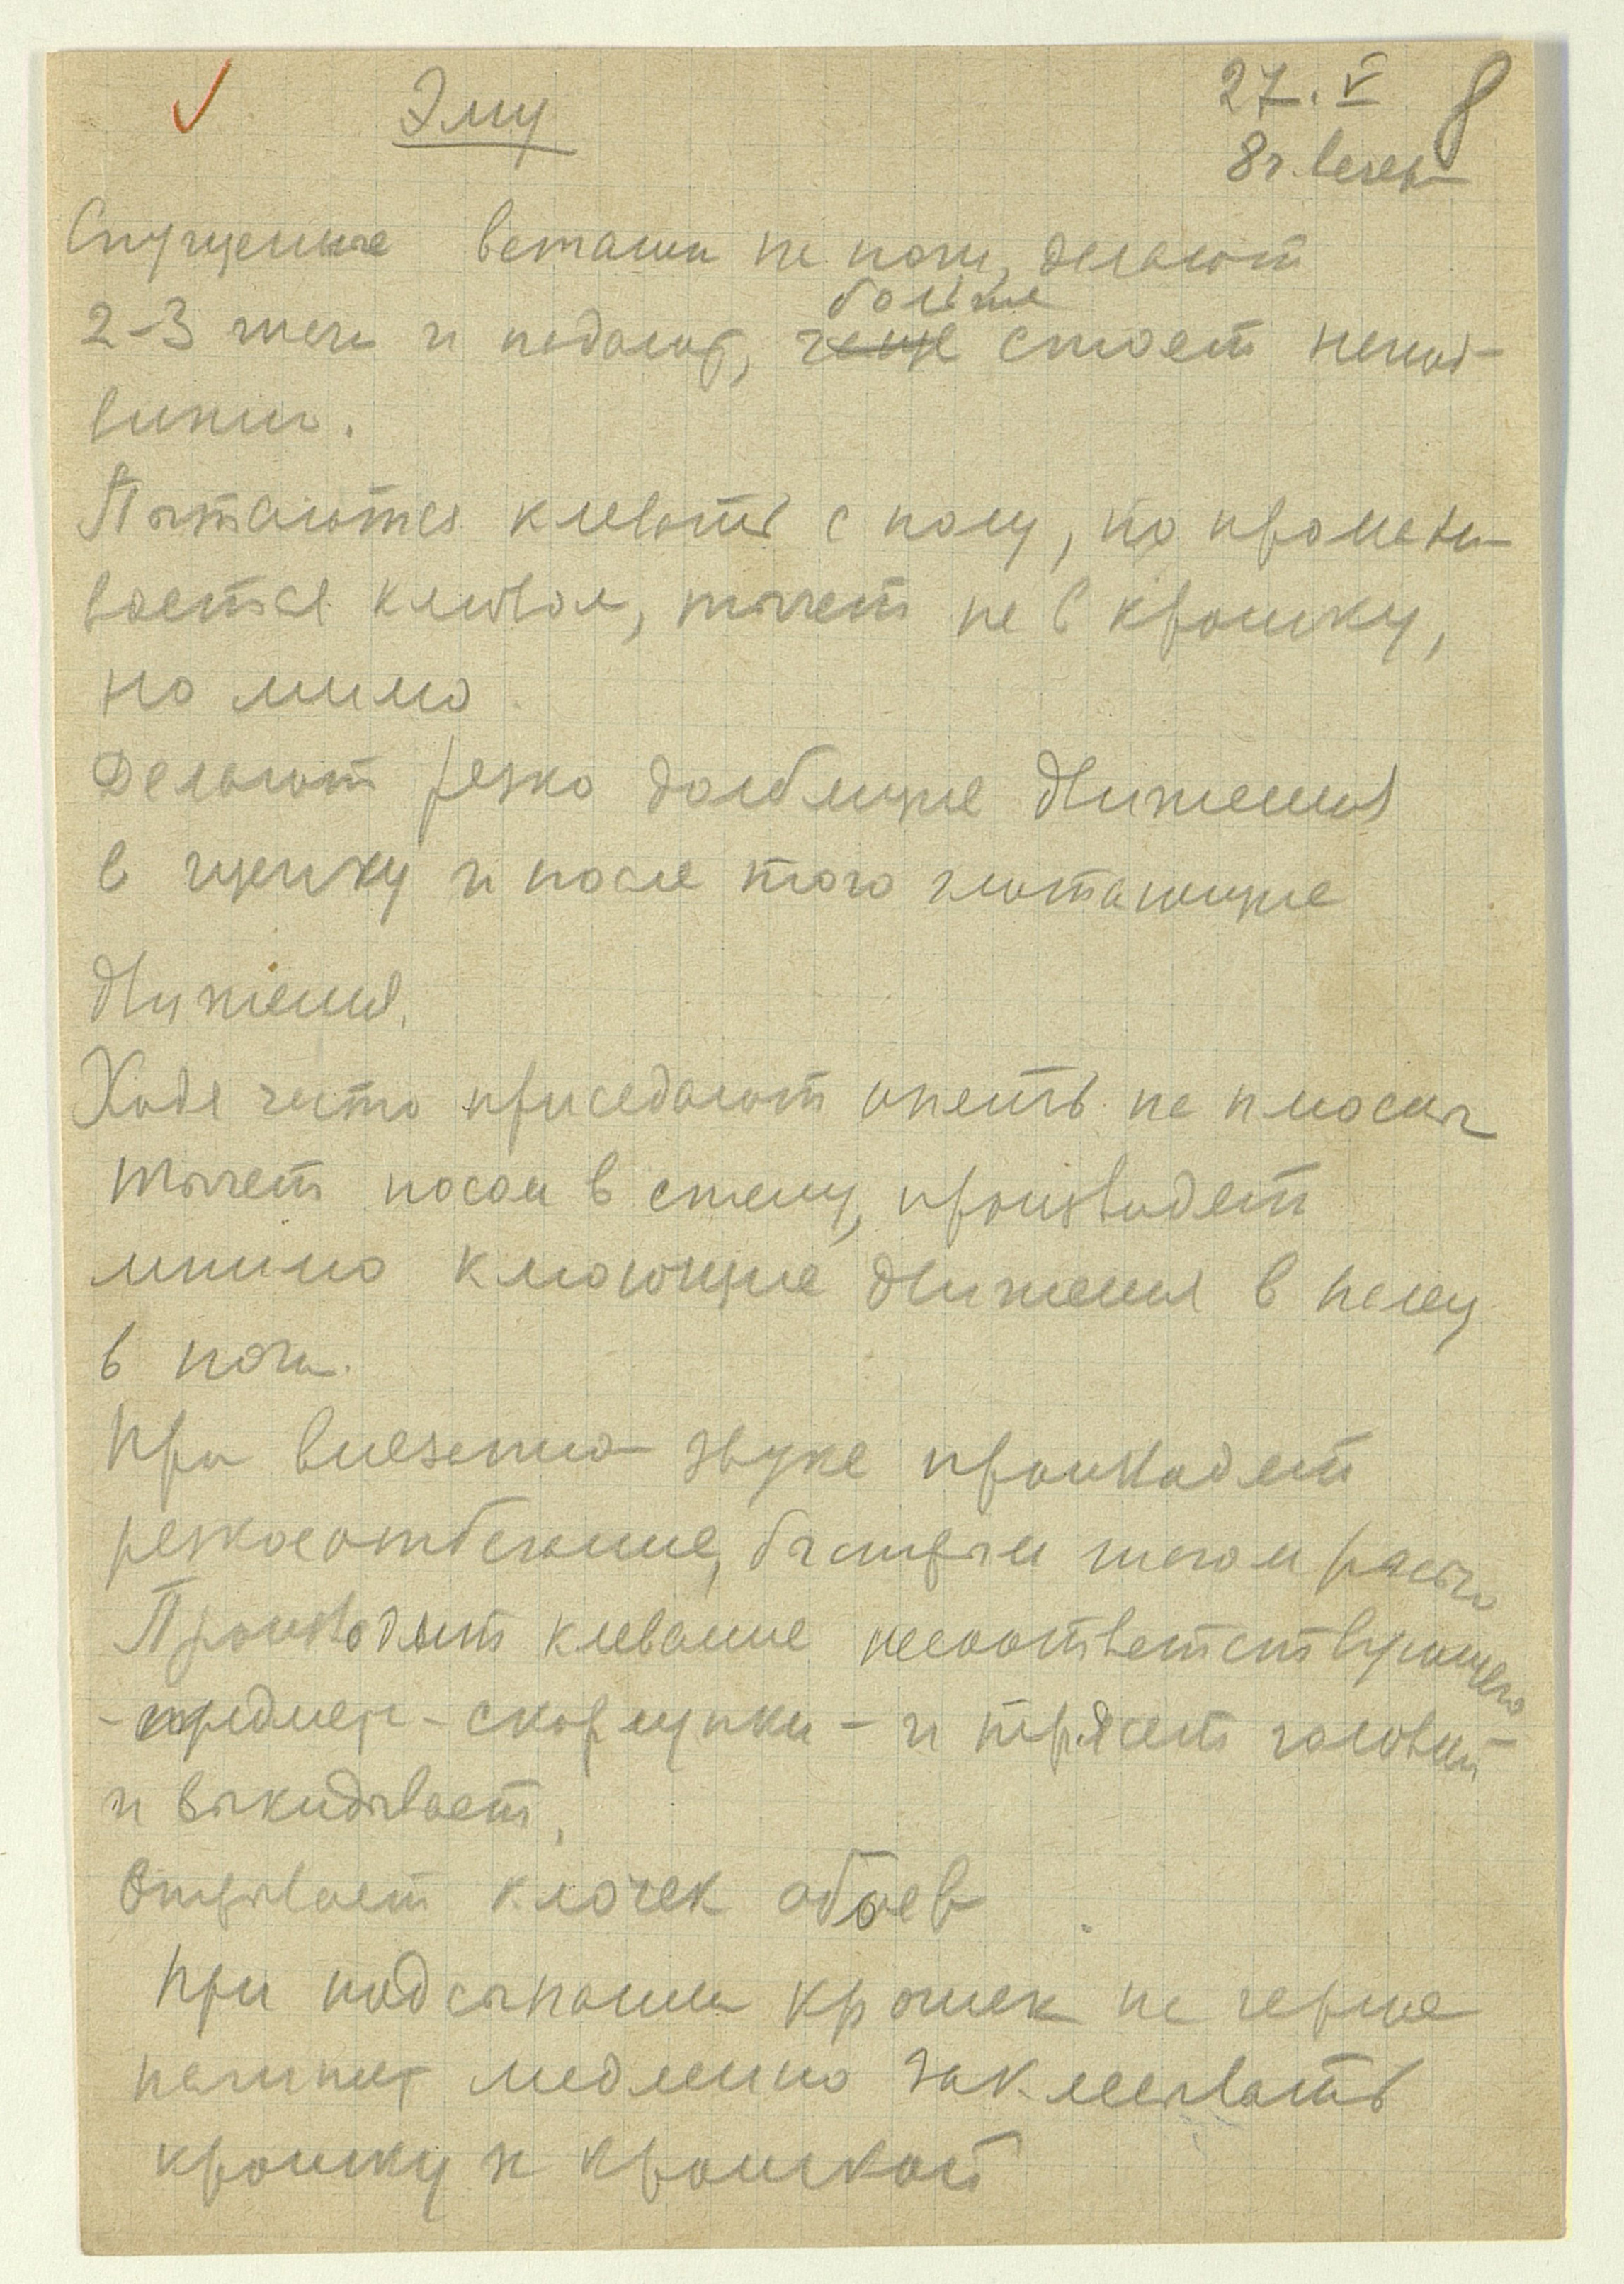 Эму
27.V 8
8 ч. вечера
Спущенные встали на ноги, делают
2-3 шага и падают, чаще больше стоят непод-
вижно.
Пытаются клевать с полу, но промахи-
вается клювом, тычет не в крошку,
но мимо
Делают резко долбящие движения
в щелку и после того глотающие
движения.
Ходя часто приседают опять на плюсны
тычет носом в стену, производит
мнимо клюющие движения в
в ноги.
При внезапно звуке производит
резкое отбегание, быстрыми шагами
Производит клевание несоответствующего
- предмета - скорлупки - и трясет головой
и выкидывает,
Отрывает клочек обоев
При подсыпании крошек на черное
начинает медленно заклевывать
крошку за крошкой